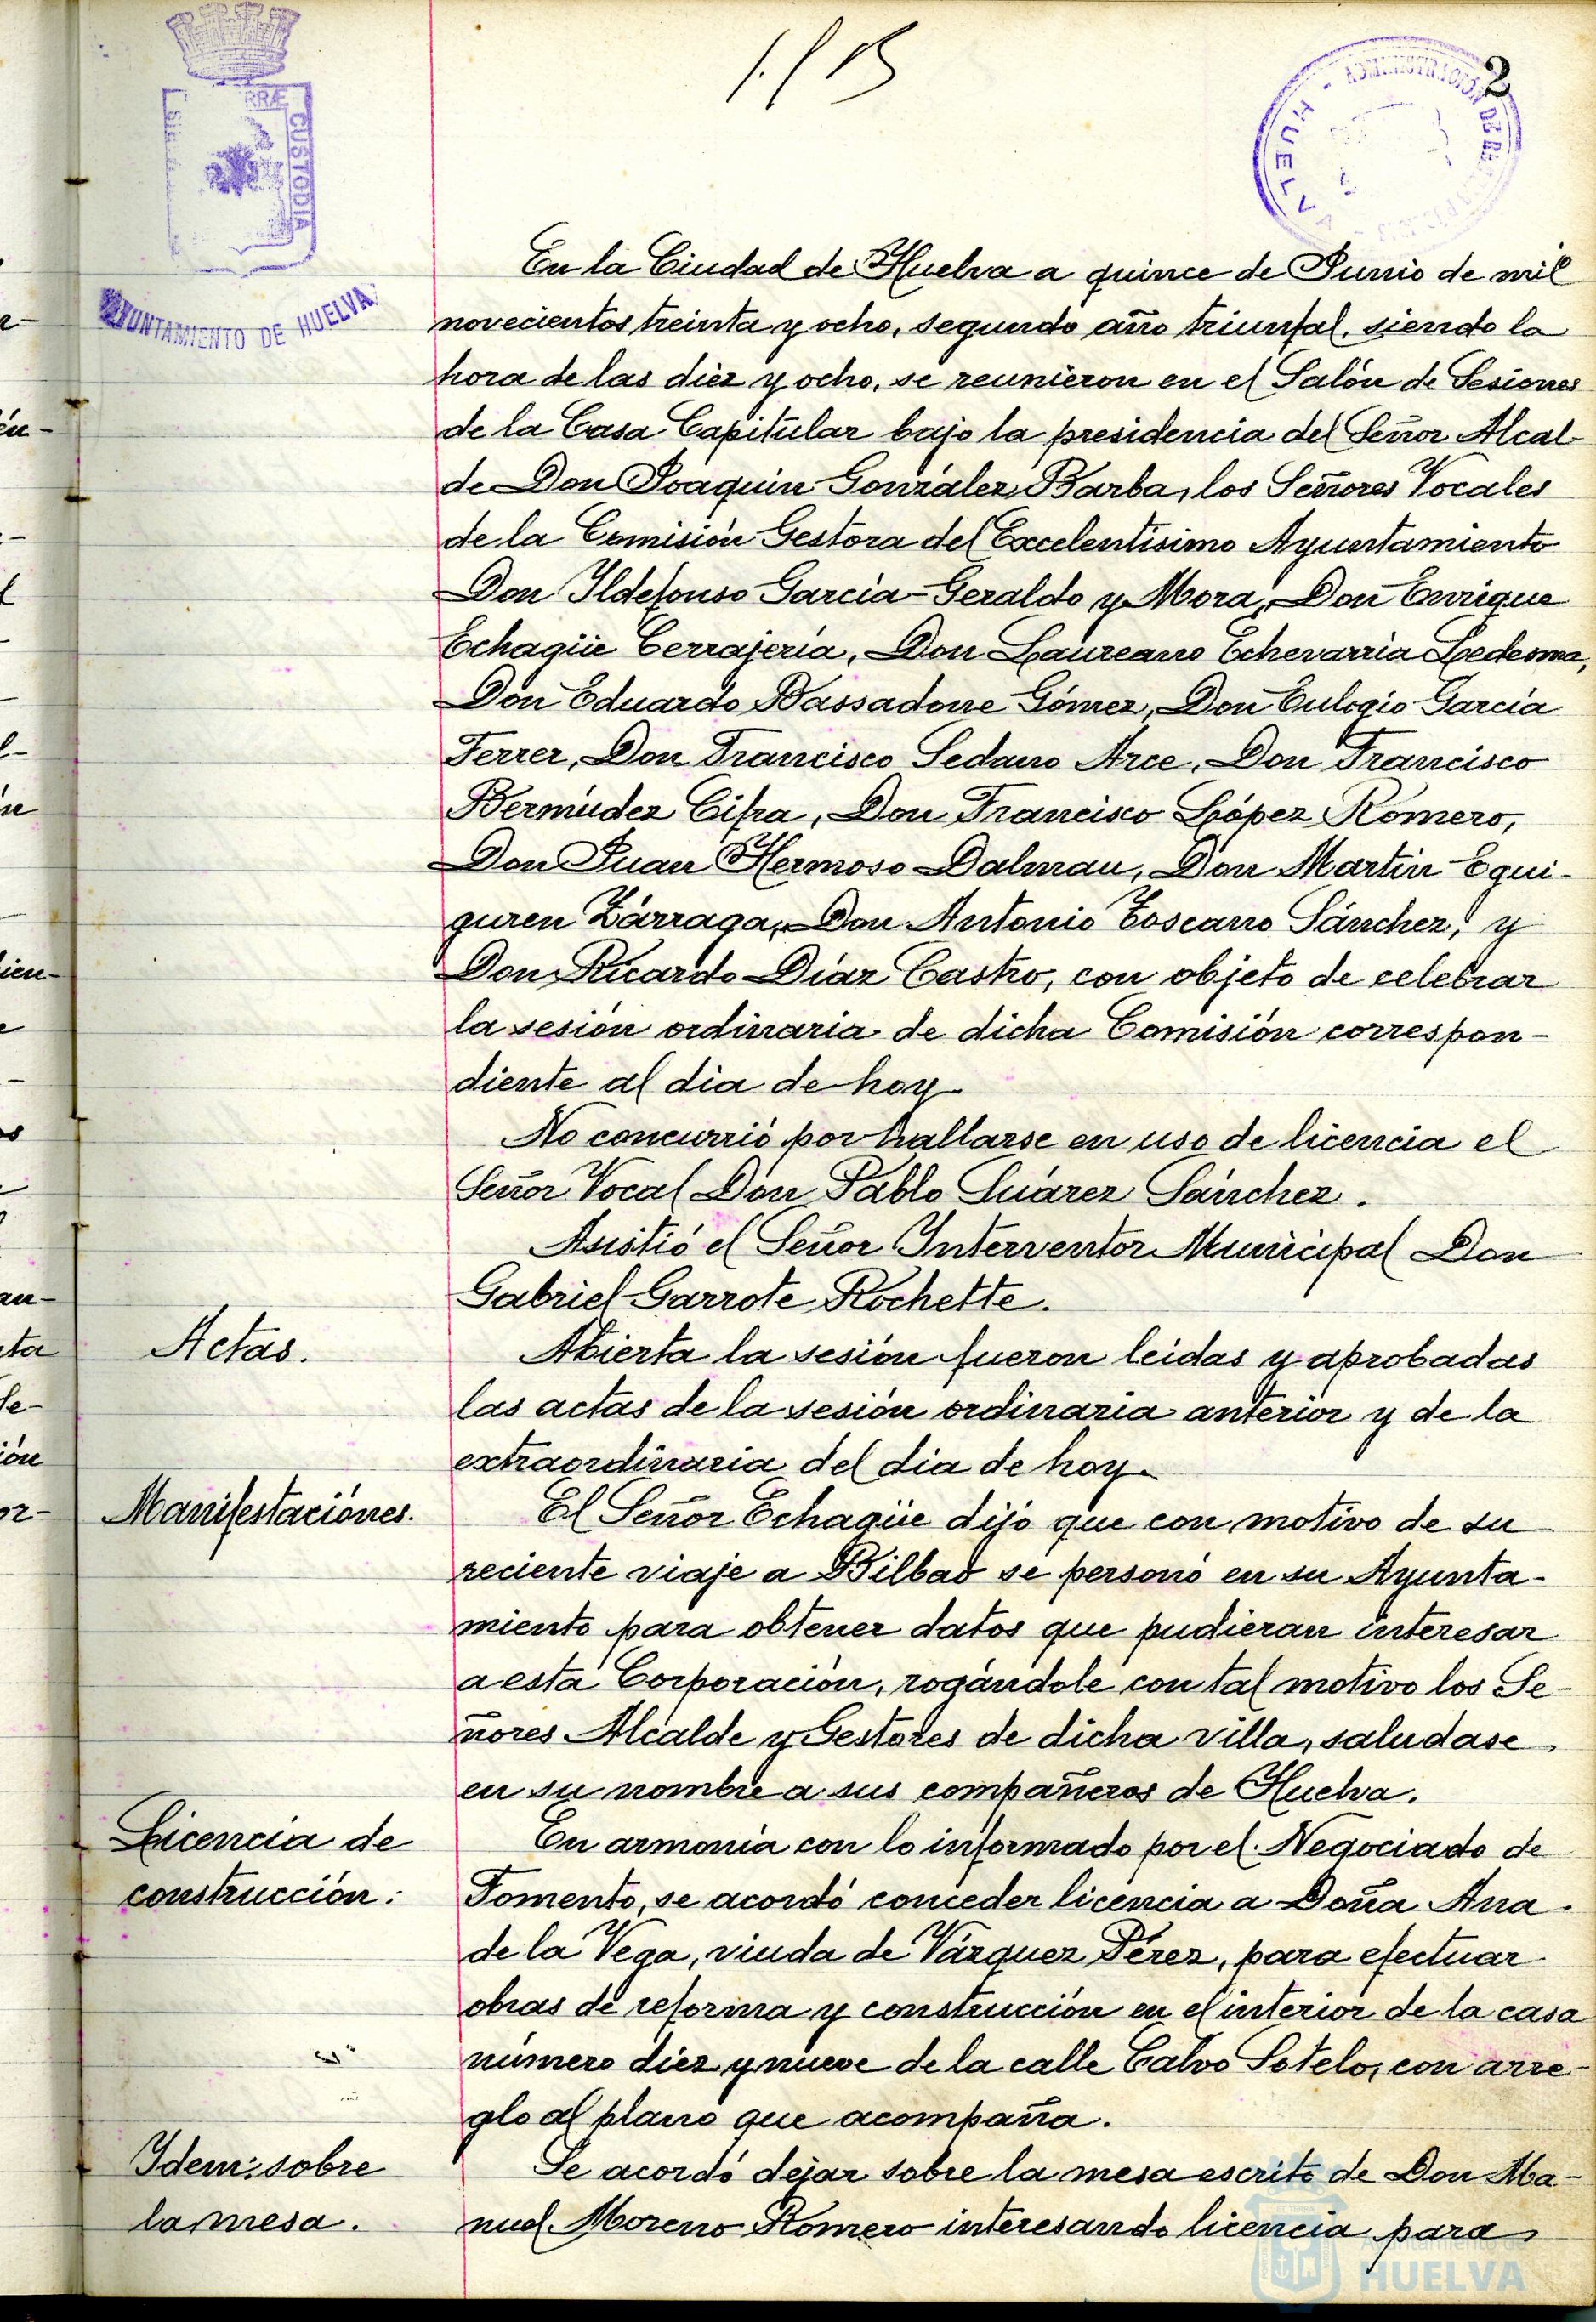 2
AYUNTAMIENTO DE HUELVA
CUSTODIA
HUELVA
En la Ciudad de Huelva a quince de Junio de mil
novecientos treinta y ocho, segundo año triunfal, siendo la
hora de las diez y ocho, se reunieron en el Salón de Sesiones
de la Casa Capitular bajo la presidencia del Señor Alcal-
de Don Joaquin González Barba, los Señores Vocales
de la Comisión Gestora del Excelentisimo Ayuntamiento
Don Ildefonso Garcia-Geraldo y Mora, Don Enrique
Echagüe Cerrajeria, Don Laureano Echevarria Ledesma,
Don Eduardo Bassadone Gómez, Don Eulogio Garcia
Ferrer, Don Francisco Sedano Arce, Don Francisco
Bermúdez Cifra, Don Francisco López Romero,
Don Juan Hermoso Dalmau, Don Martin Egui-
guren Zárraga, Don Antonio Toscano Sánchez, y
Don Ricardo Diaz Castro, con objeto de celebrar
la sesión ordinaria de dicha Comisión correspon-
diente al dia de hoy
No concurrió por hallarse en uso de licencia el
Señor Vocal Don Pablo Suárez Sánchez.
Asistió el Señor Interventor Municipal Don
Gabriel Garrote Rochette.
Actas.
Abierta la sesión fueron leidas y aprobadas
las actas de la sesión ordinaria anterior y de la
extraordinaria del dia de hoy.
Manifestaciónes.
El Señor Echagüe dijó que con motivo de su
reciente viaje a Bilbao se personó en su Ayunta-
miento para obtener datos que pudieran interesar
a esta Corporación, rogándole con tal motivo los Se-
ñores Alcalde y Gestores de dicha villa, saludase
en su nombre a sus compañeros de Huelva.
Licencia de
construcción:
En armonia con lo informado por el Negociado de
Fomento, se acordó conceder licencia a Doña Ana
de la Vega, viuda de Vázquez Pérez, para efectuar
obras de reforma y construcción en el interior de la casa
número diez y nueve de la calle Calvo Sotelo, con arre-
glo al plano que acompaña.
Idem: sobre
la mesa.
Se acordó dejar sobre la mesa escrito de Don Ma-
nuel Moreno Romero interesando licencia para
Ayuntamiento de
HUELVA